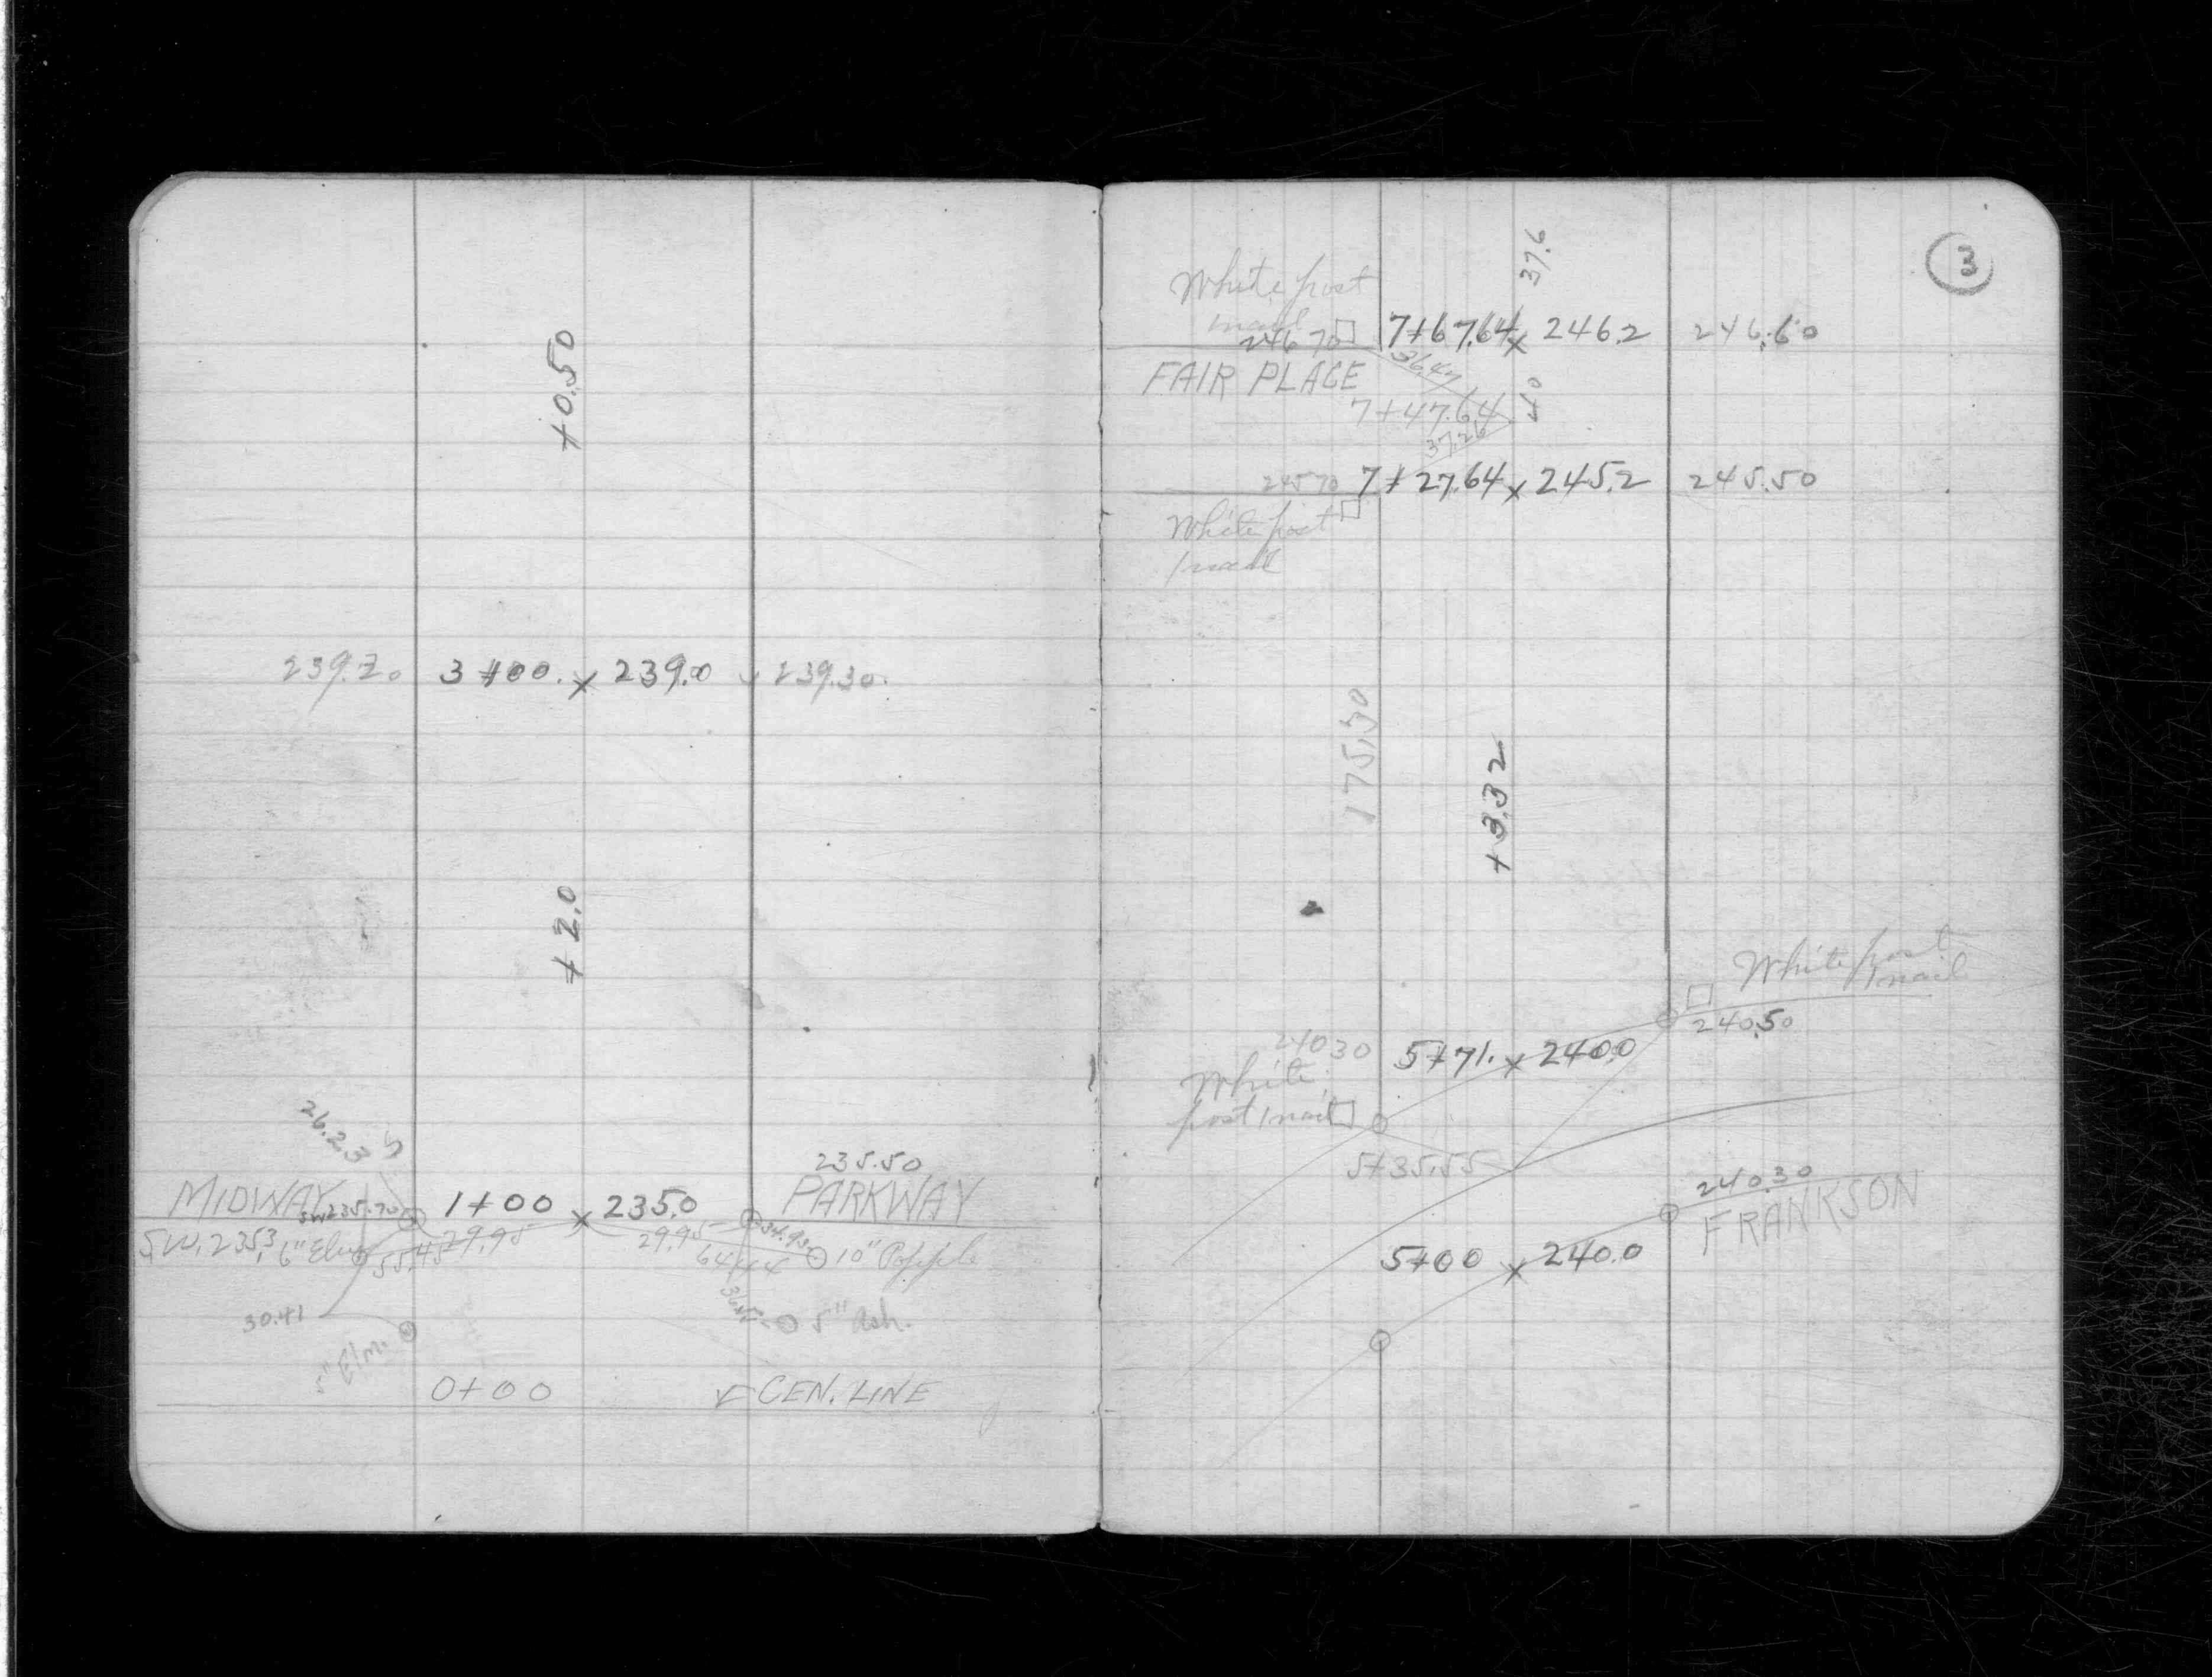 +0.50
239.70 3+00. x 239.0 239.30
+2.0
26.23
235.50
MIDWAY SW235.70 1+00 x 235.0 PARKWAY
SW. 235.3 6" Elm 55.45 29.95 29.95 34.93 64.44 10" Popple
36.52 5" Ash.
30.41
5" Elm.
0+00 CEN. LINE
3
37.6
White post
1 nail
246 70 7+67.64 x 246.2 246.60
FAIR PLACE 36.47
40
7+47.64
37.26
245 70 7+27.64 x 245.2 245.50
White post
1 nail
175.30
+3.32
White post
1 nail
240.50
240 30 5+71. x 240.0
White
post 1 nail
5+35.55
240.30
FRANKSON
5+00 x 240.0